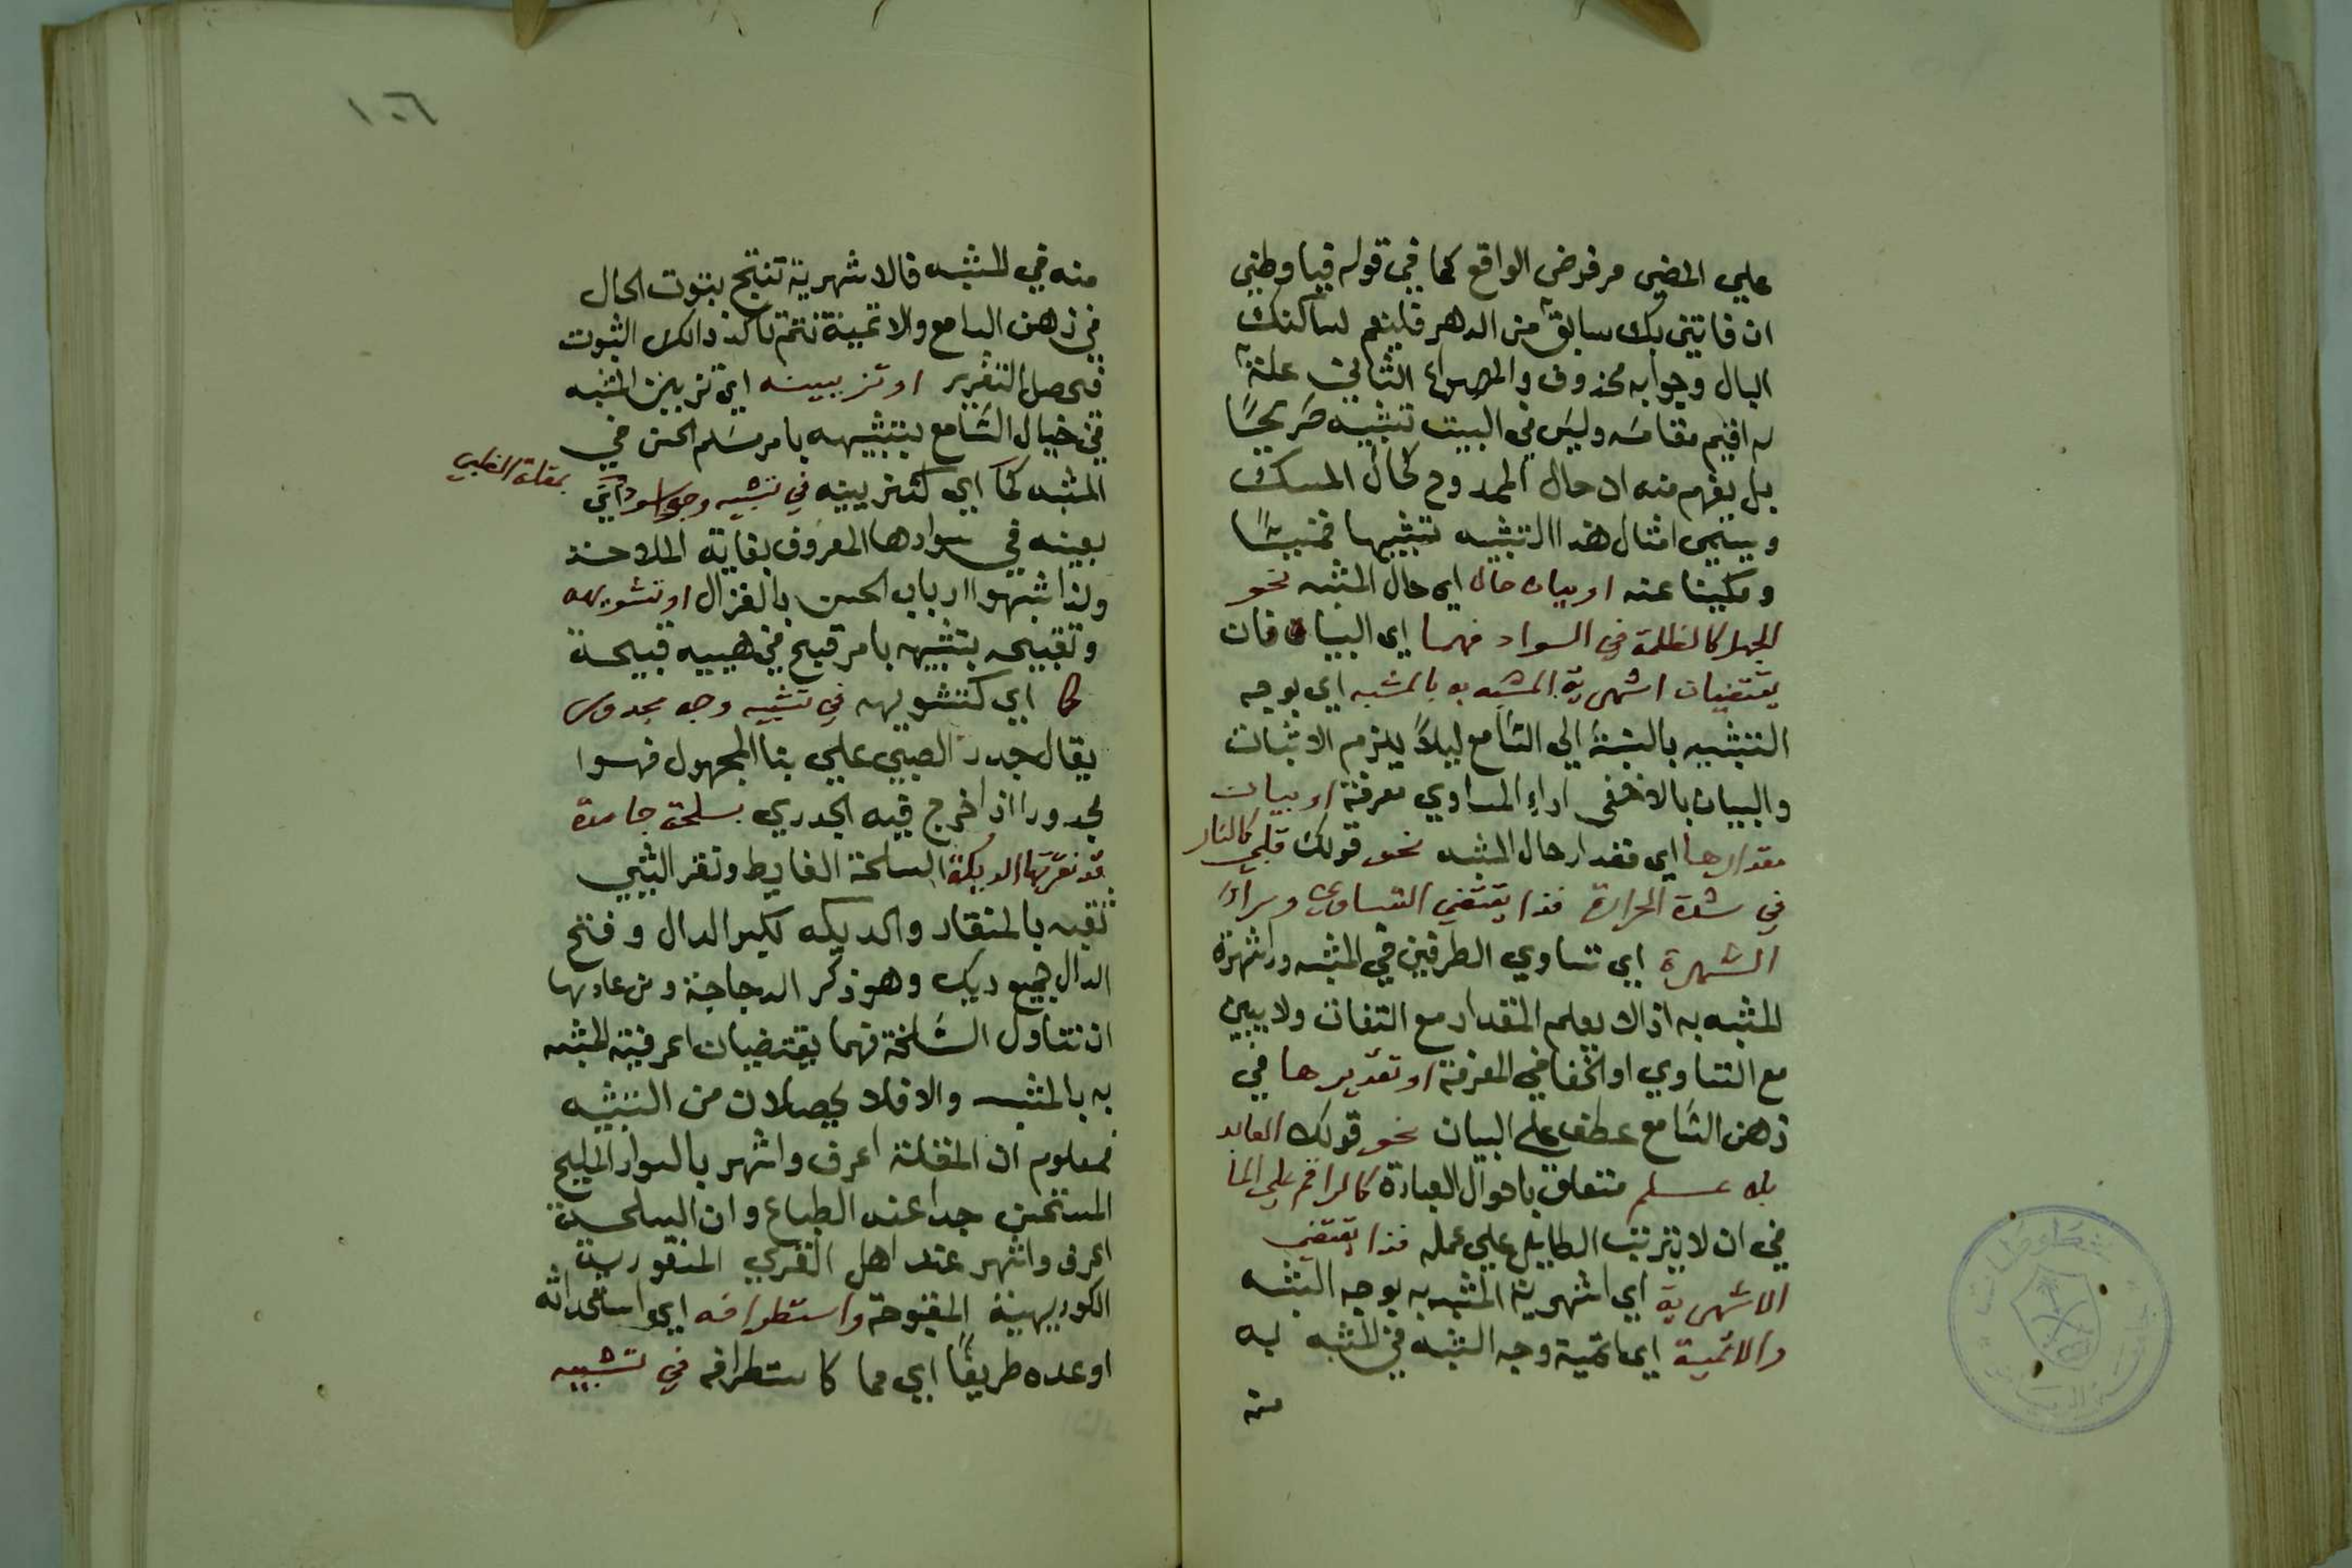 علي المضي مرفرض الواقع كما في قوله فيا وطني
ان فاتني بك سابق من الدهر فلينعم لساكنك
البال وجوابه محذوف والمصراع الثاني علة
له اقيم مقامه وليس في البيت تشبيه صريحًا
بل يفهم منه ان حال الممدوح كحال المسك
ويسمى امثال هذا التشبيه تشبيها ضمنيا
ومكنيا عنه او بيان حال اي حال المشبه نحو
الجهل كالظلمة في السواد فهما اي البيان فان
يقتضيان اشهرية المشبه به بالمشبه اي بوجه
التشبيه بالنسبة الي السامع ليلا يلزم الاثبات
والبيان بالاخفى اداء المساوي معرفة او بيان
مقدارها اي مقدار حال المشبه نحو قولك قلبي كالنار
في شدة الحرارة فذا يقتضي التساوي وراء
الشهرة اي تساوي الطرفين في المشبه وراشهرة
المشبه به اذ لا يعلم المقدار مع التفات ولا يبين
مع التساوي او الخفا في المعرفة او تقديرها في
ذهن السامع عطف على البيان نحو قولك العابد
بلا علم متعلق باحوال العبادة كالراقم علي الما
في ان لا يترتب الطايل علي عمله فذا يقتضي
الاشهرية اي اشهرية المشبه به بوجه الشبه
والاتمية اي اتمية وجه الشبه في المشبه به
منه
١٠٦
منه في المشبه فالاشهرية تنتج بثبوت الحال
في ذهن السامع والاتمية تتم تاكد ذالك الثبوت
فحصل التقرير او تزيينه اي تزيين المشبه
في خيال السامع بتشبيهه بامر مسلم الحسن في
المشبه كما اي كتزيينه في تشبيه وجه اسود اي
بمقلة الظبي
بعينه في سوادها المعروف بغاية الملاحة
ولذا شبهوا ارباب الحسن بالغزال او تشويهه
وتقبيحه بتشبيهه بامر قبيح في هييه قبيحة
كما اي كتشويهه في تشبيه وجه مجدور
يقال جدر الصبي علي بنا المجهول فهوا
مجدورا اذا خرج فيه الجدري بسلحة جامدة
قد نقرتها الديكة السلحة الغايط ونقر الشيي
نقبه بالمنقار والديكه بكسر الدال وفتح
الدال جميع ديك وهو ذكر الدجاجة ومن عادتها
ان تتناول السلخة فهما يقتضيان اعرفية المشبه
به بالمشبه والا فلا يحصلان من التشبيه
فمعلوم ان المقلة اعرف واشهر بالسواد المليح
المستحسن جدا عند الطباع وان السلحة
اعرف واشهر عند اهل القري المنقورة
الكوريهية المقبوحة واستطرافه اي استحداثه
او عده طريفًا اي مما كاستطرافه في تشبيه